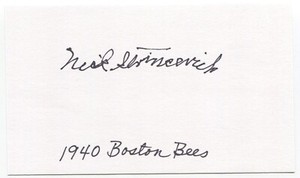 Nick Strincevich
1940 Boston Bees